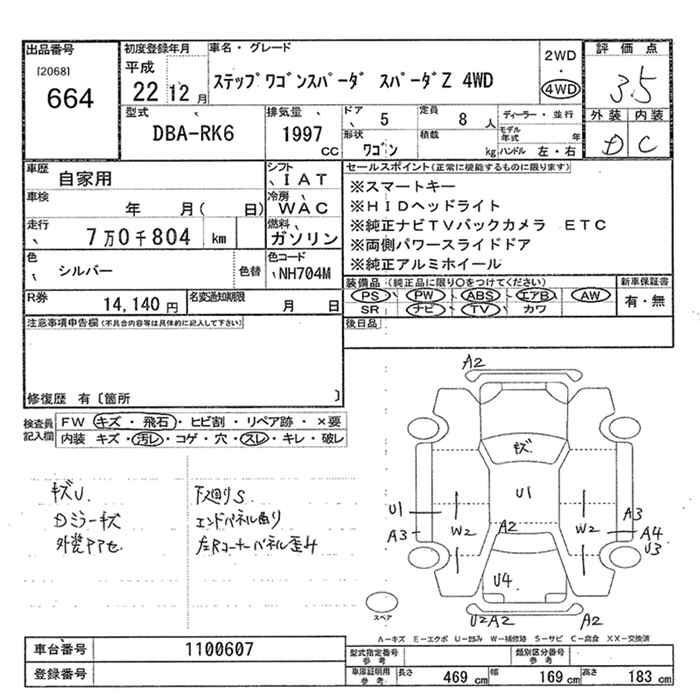 出品番号
[2068]
664
初度登録年月
平成
22 12 月
車名・グレード
ステップワゴンスパーダ スパーダZ 4WD
2WD
・
4WD
評価点
3.5
外装 内装
D C
型式
DBA-RK6
排気量
1997
cc
ドア
5
形状
ワゴン
定員
8 人
積載
kg
ディーラー・並行
モデル年式 年
ハンドル 左・右
車歴
自家用
シフト
IAT
車検
年 月( 日)
冷房
WAC
走行
7万0千804 km
燃料
ガソリン
色
シルバー
色替
色コード
NH704M
R券
14,140 円
名変通知期限
月 日
セールスポイント(正常に機能するものに限ります)
※スマートキー
※HIDヘッドライト
※純正ナビTVバックカメラ ETC
※両側パワースライドドア
※純正アルミホイール
装備品(純正品に限り○をつけてください)
PS PW ABS エアB AW
SR ナビ TV カワ
新車保証書
有・無
後日品
注意事項申告欄(不具合内容等は具体的に記入して下さい)
修復歴 有〔箇所 〕
検査員
記入欄
FW キズ・飛石・ヒビ割・リペア跡・×要
内装 キズ・汚レ・コゲ・穴・スレ・キレ・破レ
キズU
Dミラーキズ
外装アアセ
下廻りS
エンドパネル曲り
左Rコーナーパネル歪み
A2
キズ
U1
U1
A3
W2
A2
W2
A3
A4
U3
U4
U2A2
A2
スペア
A-キズ E-エクボ U-凹み W-補修跡 S-サビ C-腐食 XX-交換済
車台番号
1100607
登録番号
型式指定番号
参考
類別区分番号
参考
車庫証明用
参考
長さ
469 cm
幅
169 cm
高さ
183 cm